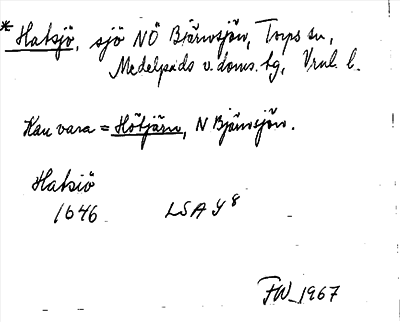 * Hatsjö, sjö NÖ Bjärnsjön, Torps sn,
Medelpads v. doms. tg, Vnl. l.
Kan vara = Hötjärn, N Bjärnsjön.
Hatsiö
1646 LSA Y 8
FW 1967